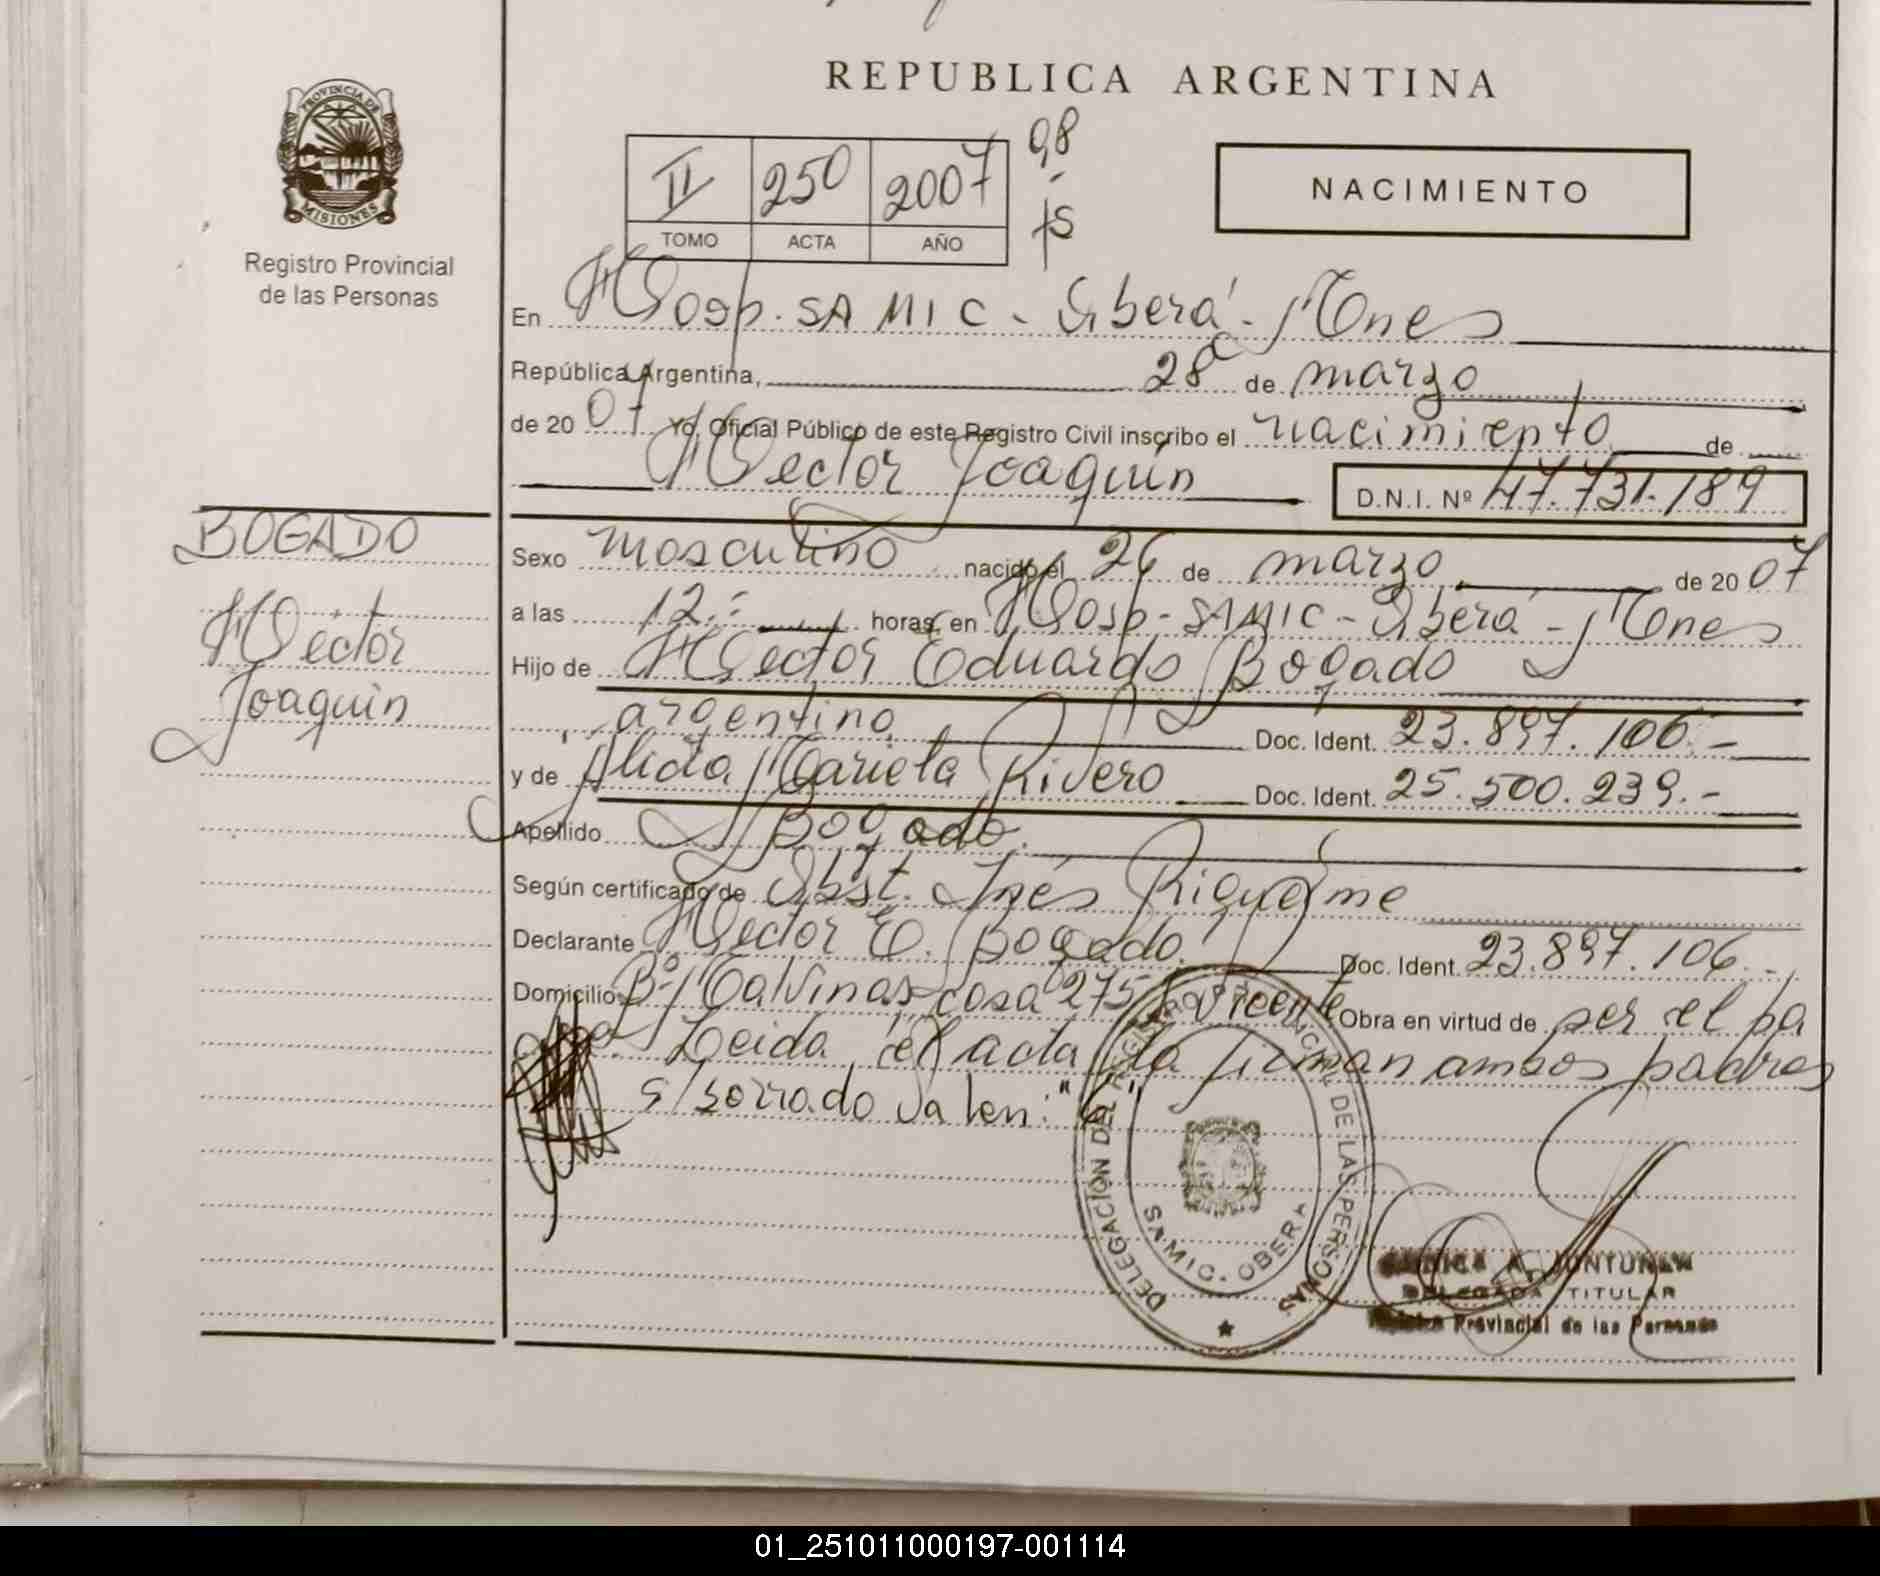 REPUBLICA ARGENTINA
PROVINCIA DE
MISIONES
Registro Provincial
de las Personas
II 250 2007 98
TOMO ACTA AÑO
NACIMIENTO
En Hosp. SAMIC - Oberá - Mnes
República Argentina, 28 de marzo
de 20 07 Yo, Oficial Público de este Registro Civil inscribo el nacimiento de
Hector Joaquín D.N.I. Nº 47.731.189
BOGADO
Héctor
Joaquín
Sexo masculino nacido el 26 de marzo de 20 07
a las 12.- horas, en Hosp - SAMIC - Oberá - Mnes
Hijo de Hector Eduardo Bogado
argentino Doc. Ident. 23.897.106.-
y de Alida Mariela Rivero Doc. Ident. 25.500.239.-
Apellido Bogado.
Según certificado de Obst. Inés Riquelme
Declarante Hector E. Bogado. Doc. Ident. 23.897.106.-
Domicilio Bº Malvinas casa 275 Vicente Obra en virtud de ser el pa
Leida el acta la firman ambos padres
s/borrado valen: "6"
DELEGACION DEL REGISTRO PROVINCIAL DE LAS PERSONAS
SAMIC - OBERA
A. JUNTUNEN
DELEGADA TITULAR
Provincial de las Personas
01_251011000197-001114